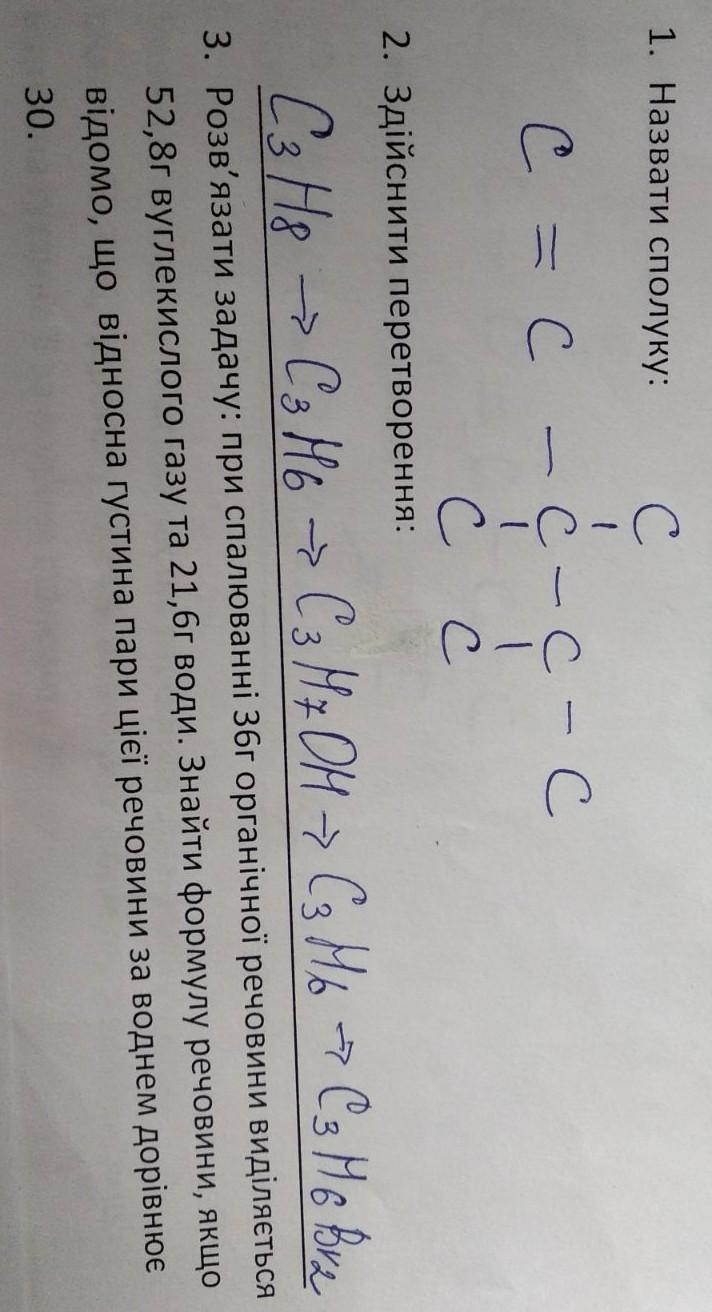 1. Назвати сполуку:
C
C = C – C – C – C
C C
2. Здійснити перетворення:
C3H8 → C3H6 → C3H7OH → C3H6 → C3H6Br2
3. Розв'язати задачу: при спалюванні 36г органічної речовини виділяється
52,8г вуглекислого газу та 21,6г води. Знайти формулу речовини, якщо
відомо, що відносна густина пари цієї речовини за воднем дорівнює
30.